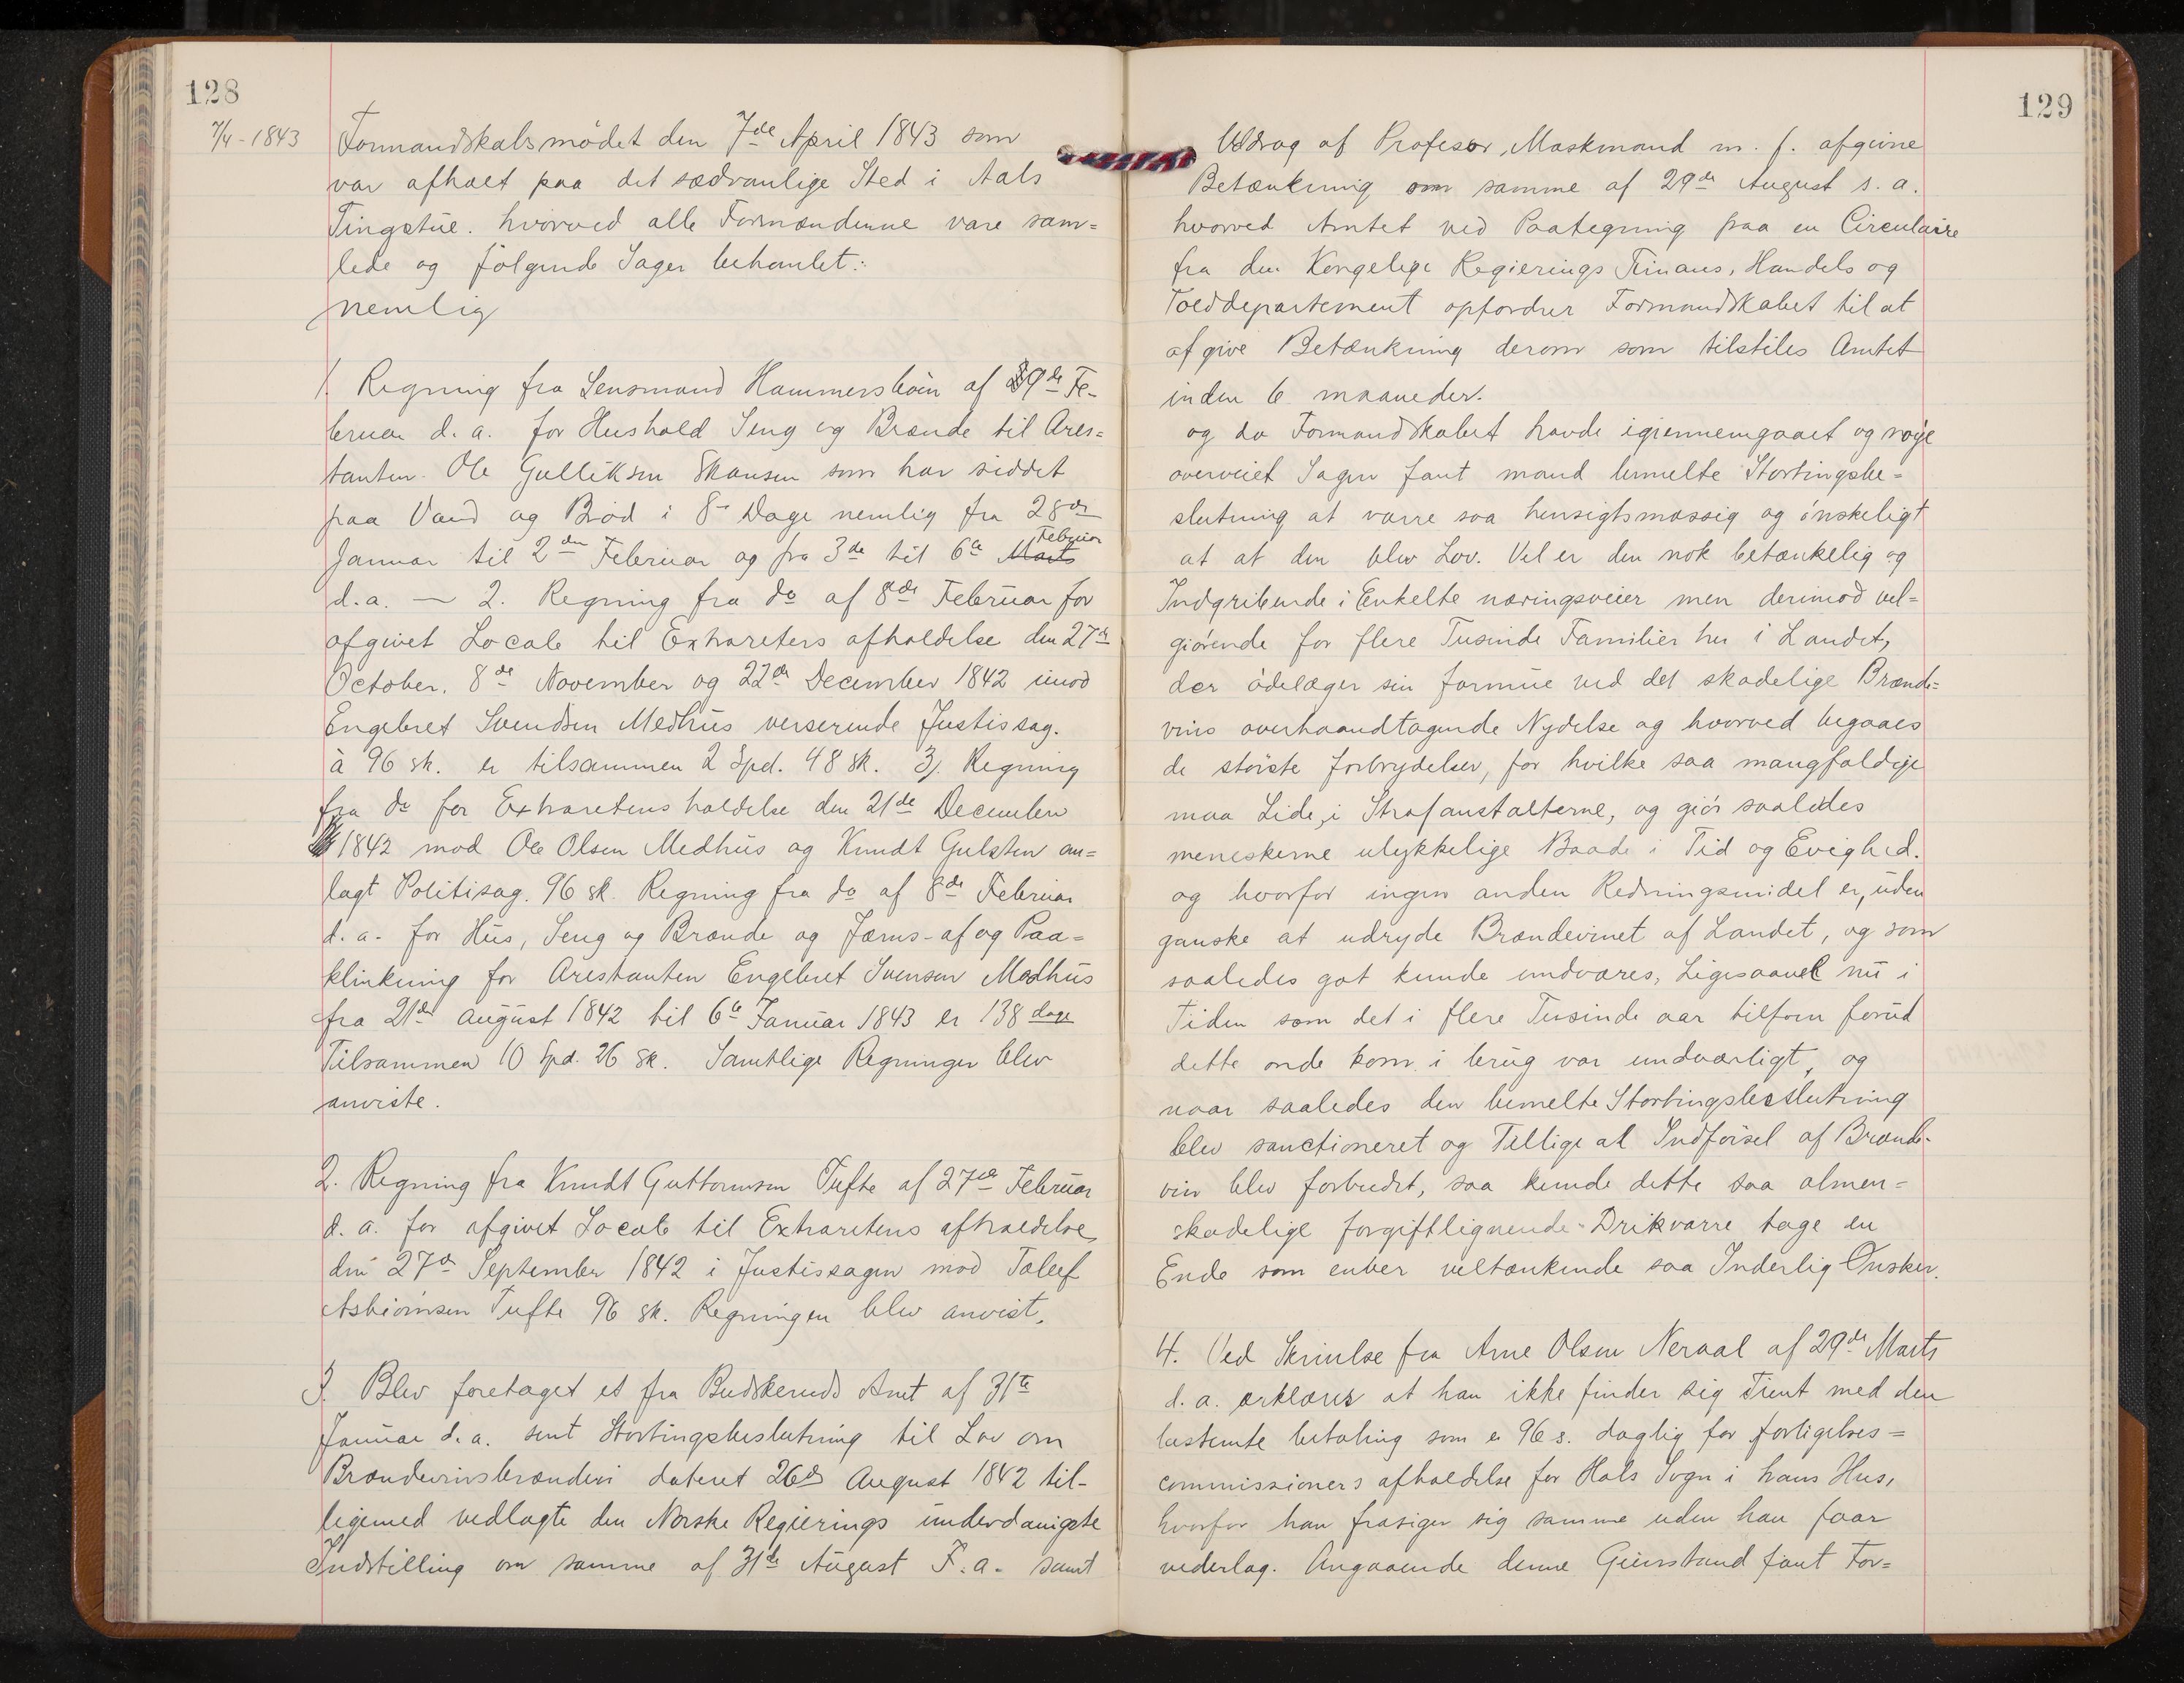 128
7/4-1843
Formandskabsmødet den 7de April 1843 som
var afholt paa det sædvanlige Sted i Aals
Tingstue. hvorved alle Formændenne vare sam=
lede og følgende Sager behanlet:
nemlig
1. Regning fra Lensmand Hammersbøin af 9de Fe-
bruar d. a. for Hushold Seng og Brænde til Ares=
tanten Ole Gulliksen Skansen som har siddet
paa Vand og Brød i 8 Dage nemlig fra 28de
Februar
Januar til 2den Februar og fra 3de til 6te Marts
d. a. — 2. Regning fra do af 8de Februar for
afgivet Locale til Extrareters afholdelse den 27de
October, 8de November og 22de December 1842 imod
Engebret Svendsen Medhus verserende Justissag.
à 96 sk. er tilsammen 2 Spd. 48 sk. 3). Regning
fra do for Extraretens holdelse den 21de December
1842 mod Ole Olsen Medhus og Knudt Gulsten an=
lagt Politisag. 96 sk. Regning fra do af 8de Februar
d. a. for Hus, Seng og Brænde og Jærns-af og Paa=
klinkning for Arestanten Engebret Svensen Medhus
fra 21de august 1842 til 6te Januar 1843 er 138 dage
Tilsammen 10 Spd. 26 sk. Samtlige Regninger blev
anviste.
2. Regning fra Knudt Guttormsen Tufte af 27de Februar
d. a. for afgivet Locale til Extraretens afholdelse
den 27de September 1842 i Justissagen mod Tolef
Asbiørnsen Tufte 96 sk. Regningen blev anvist.
3. Blev foretaget et fra Budskeruds Amt af 31te
Januar d. a. sent Stortingsbeslutning til Lov om
Brændevinsbrænderi dateret 26de August 1842 til-
ligemed vedlagte den Norske Regierings underdanigste
Indstilling om samme af 31te August F. a. samt
129
Uddrag af Profesor, Maskmand m. f. afgivne
Betænkning om samme af 29de August s. a.
hvorved Amtet ved Paategning paa en Circulaire
fra den Kongelige Regierings Finans, Handels og
Tolddepartement opfordrer Formandskabet til at
afgive Betænkning derom som tilstiles Amtet
inden 6 maaneder.
og da Formandskabet havde igiennemgaaet og nøye
overveiet Sagen fant mand bemelte Stortingsbe=
slutning at være saa hensigtsmæssig og ønskeligt
at at den blev Lov. Vel er den nok betænkelig og
Indgribende i Enkelte næringsveier men derimod vel=
giørende for flere Tusinde Familier her i Landet,
der ødelæger sin formue ved det skadelige Brænde=
vins overhaandtagende Nydelse og hvorved begaaes
de støiste forbrydelser, for hvilke saa mangfoldige
maa Lide, i Strafanstalterne, og giør saaledes
meneskerne ulykkelige Baade i Tid og Evighed.
og hvorfor ingen anden Redningsmidel er, uden
ganske at udryde Brændevinet af Landet, og som
saaledes got kunde undværes, Ligesaavel nu i
Tiden som det i flere Tusinde aar tilforn forud
dette onde kom i brug var undværligt, og
naar saaledes den bemelte Stortingsbesslutning
blev sanctioneret og Tillige at Indførsel af Brænde-
vin blev forbudet, saa kunde dette saa almen=
skadelige forgiftlignende Drikvarre tage en
Ende som enver veltænkende saa Inderlig Ønsker.
4. Ved Skrivelse fra Arne Olsen Neraal af 29de Marts
d. a. ærklæres at han ikke finder sig Tient med den
bestemte betaling som er 96 s. daglig for forligelses=
commissioners afholdelse for Hols Sogn i hans Hus,
hvorfor han frasiger sig samme uden han faar
vederlag. Angaaende denne Gienstand fant For=